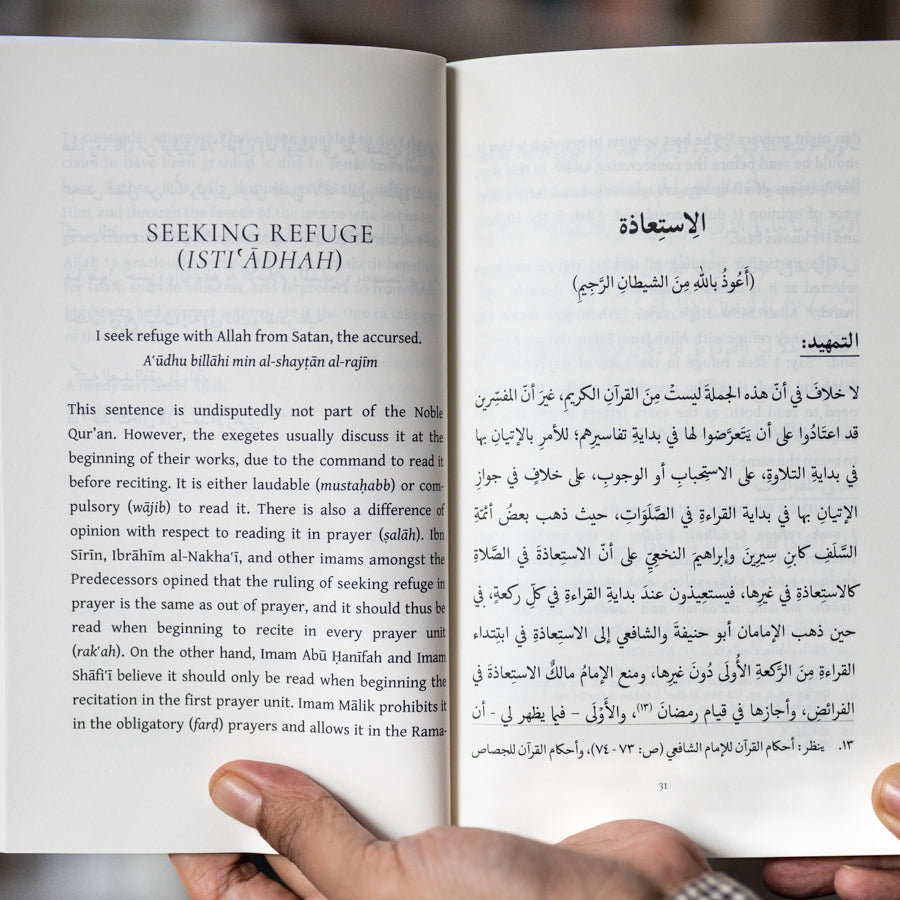 SEEKING REFUGE
(ISTIʿĀDHAH)
I seek refuge with Allah from Satan, the accursed.
Aʿūdhu billāhi min al-shayṭān al-rajīm
This sentence is undisputedly not part of the Noble
Qur’an. However, the exegetes usually discuss it at the
beginning of their works, due to the command to read it
before reciting. It is either laudable (mustaḥabb) or com-
pulsory (wājib) to read it. There is also a difference of
opinion with respect to reading it in prayer (ṣalāh). Ibn
Sīrīn, Ibrāhīm al-Nakhaʿī, and other imams amongst the
Predecessors opined that the ruling of seeking refuge in
prayer is the same as out of prayer, and it should thus be
read when beginning to recite in every prayer unit
(rakʿah). On the other hand, Imam Abū Ḥanīfah and Imam
Shāfiʿī believe it should only be read when beginning the
recitation in the first prayer unit. Imam Mālik prohibits it
in the obligatory (farḍ) prayers and allows it in the Rama-
الِاستِعاذة
(أَعُوذُ باللهِ مِنَ الشيطانِ الرَّجِيمِ)
التمهيد:
لا خلافَ في أنّ هذه الجملةَ ليستْ مِنَ القرآنِ الكريمِ، غيرَ أنّ المفسّرين
قد اعتَادُوا على أن يَتَعرَّضوا لها في بدايةِ تفاسيرِهم؛ للأمرِ بالإتيانِ بها
في بدايةِ التلاوةِ، على الاستِحبابِ أو الوجوبِ، على خلافٍ في جوازِ
الإتيانِ بها في بداية القراءةِ في الصَّلَوَاتِ، حيث ذهب بعضُ أئمّةِ
السَّلَفِ كابنِ سِيرينَ وإبراهيمَ النخعيِّ على أنّ الاستِعاذةَ في الصَّلاةِ
كالاستعاذةِ في غيرِها، فيستعيذون عندَ بدايةِ القراءةِ في كلِّ ركعةٍ، في
حين ذهب الإمامان أبو حنيفةَ والشافعي إلى الاستِعاذةِ في ابتِداء
القراءةِ مِنَ الرَّكعةِ الأُولَى دُونَ غيرِها، ومنع الإمامُ مالكٌ الاستعاذةَ في
الفرائضِ، وأجازها في قيام رمضانَ (١٣)، والأَوْلَى – فيما يظهر لي - أن
١٣. ينظر: أحكام القرآن للإمام الشافعي (ص: ٧٣ - ٧٤)، وأحكام القرآن للجصاص
31